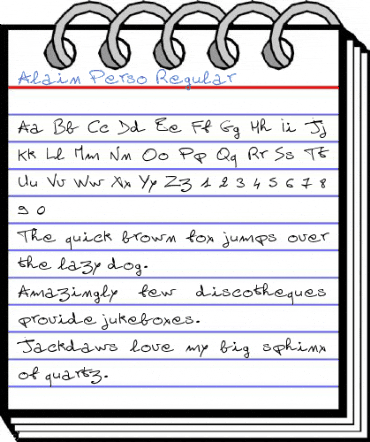 Alain Perso Regular
Aa Bb Cc Dd Ee Ff Gg Hh Ii Jj
Kk Ll Mm Nn Oo Pp Qq Rr Ss Tt
Uu Vv Ww Xx Yy Zz 1 2 3 4 5 6 7 8
9 0
The quick brown fox jumps over
the lazy dog.
Amazingly few discotheques
provide jukeboxes.
Jackdaws love my big sphinx
of quartz.